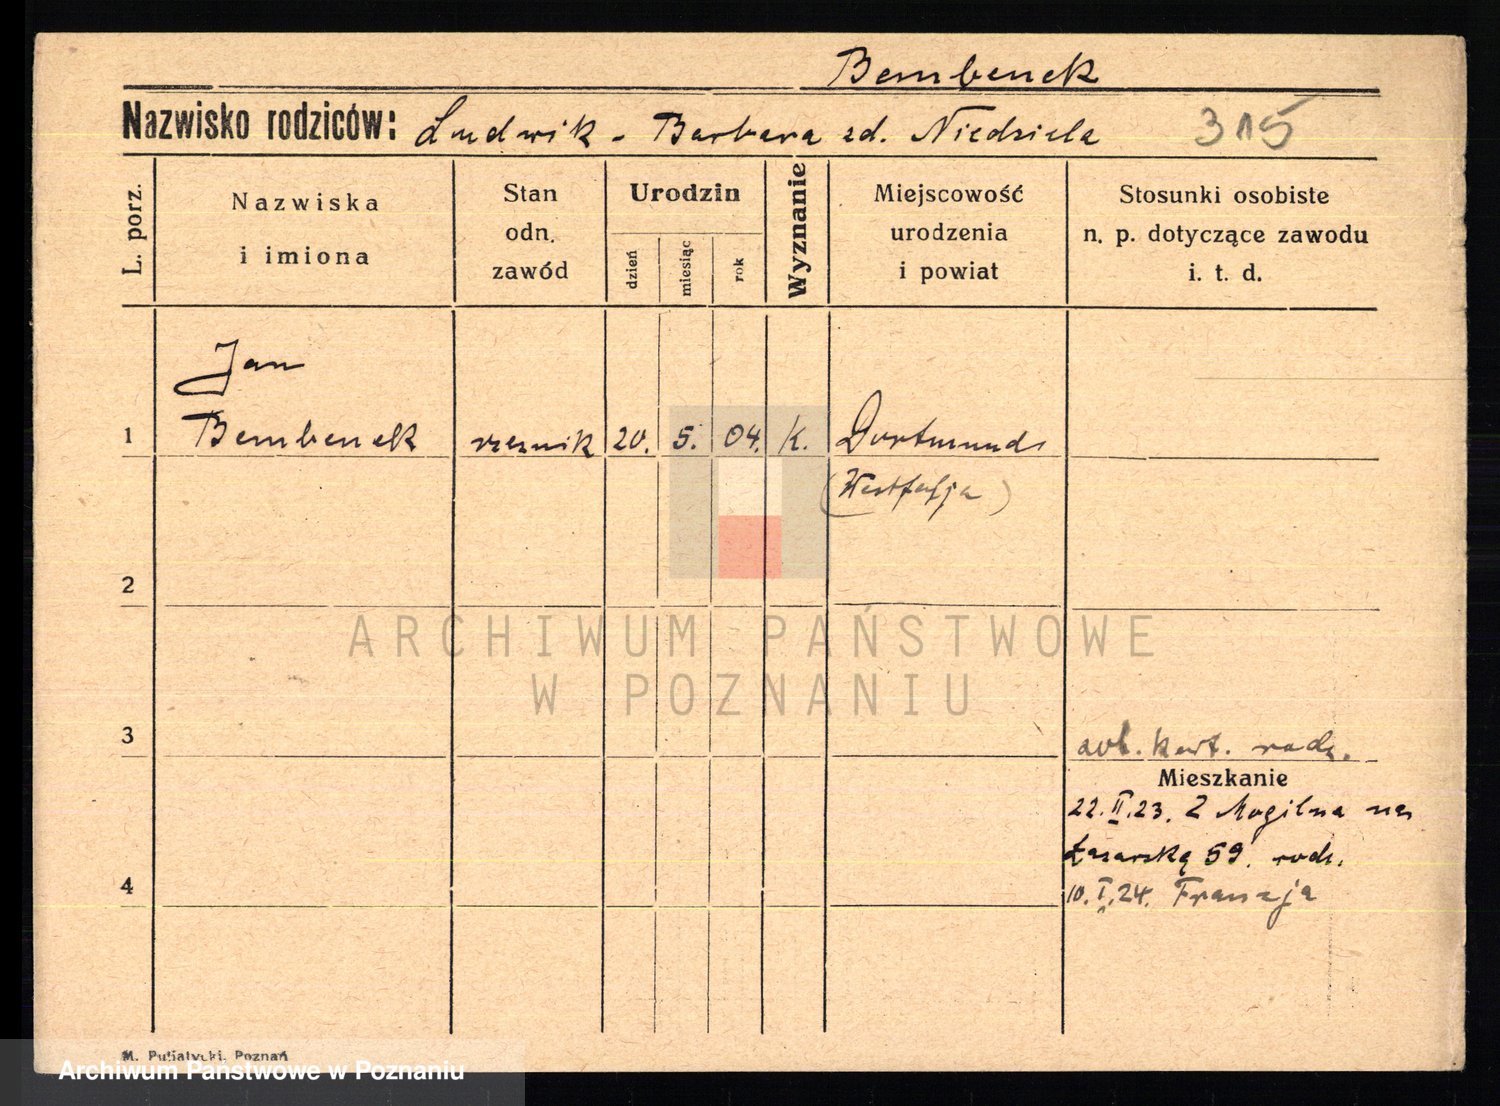 Bembenek
Nazwisko rodziców: Ludwik - Barbara zd. Niedziela 315
L. porz.
Nazwiska
i imiona
Stan
odn.
zawód
Urodzin
dzień
miesiąc
rok
Wyznanie
Miejscowość
urodzenia
i powiat
Stosunki osobiste
n. p. dotyczące zawodu
i. t. d.
Jan
1 Bembenek rzeznik 20. 5. 04. k. Dortmund
(Westfalja)
2
ARCHIWUM PAŃSTWOWE
W POZNANIU
3
kart. rodz.
Mieszkanie
22.II.23. Z Mogilna na
Łazarską 59. rodz.
4
10.I.24. Francja
M. Pufiatycki, Poznań
Archiwum Państwowe w Poznaniu